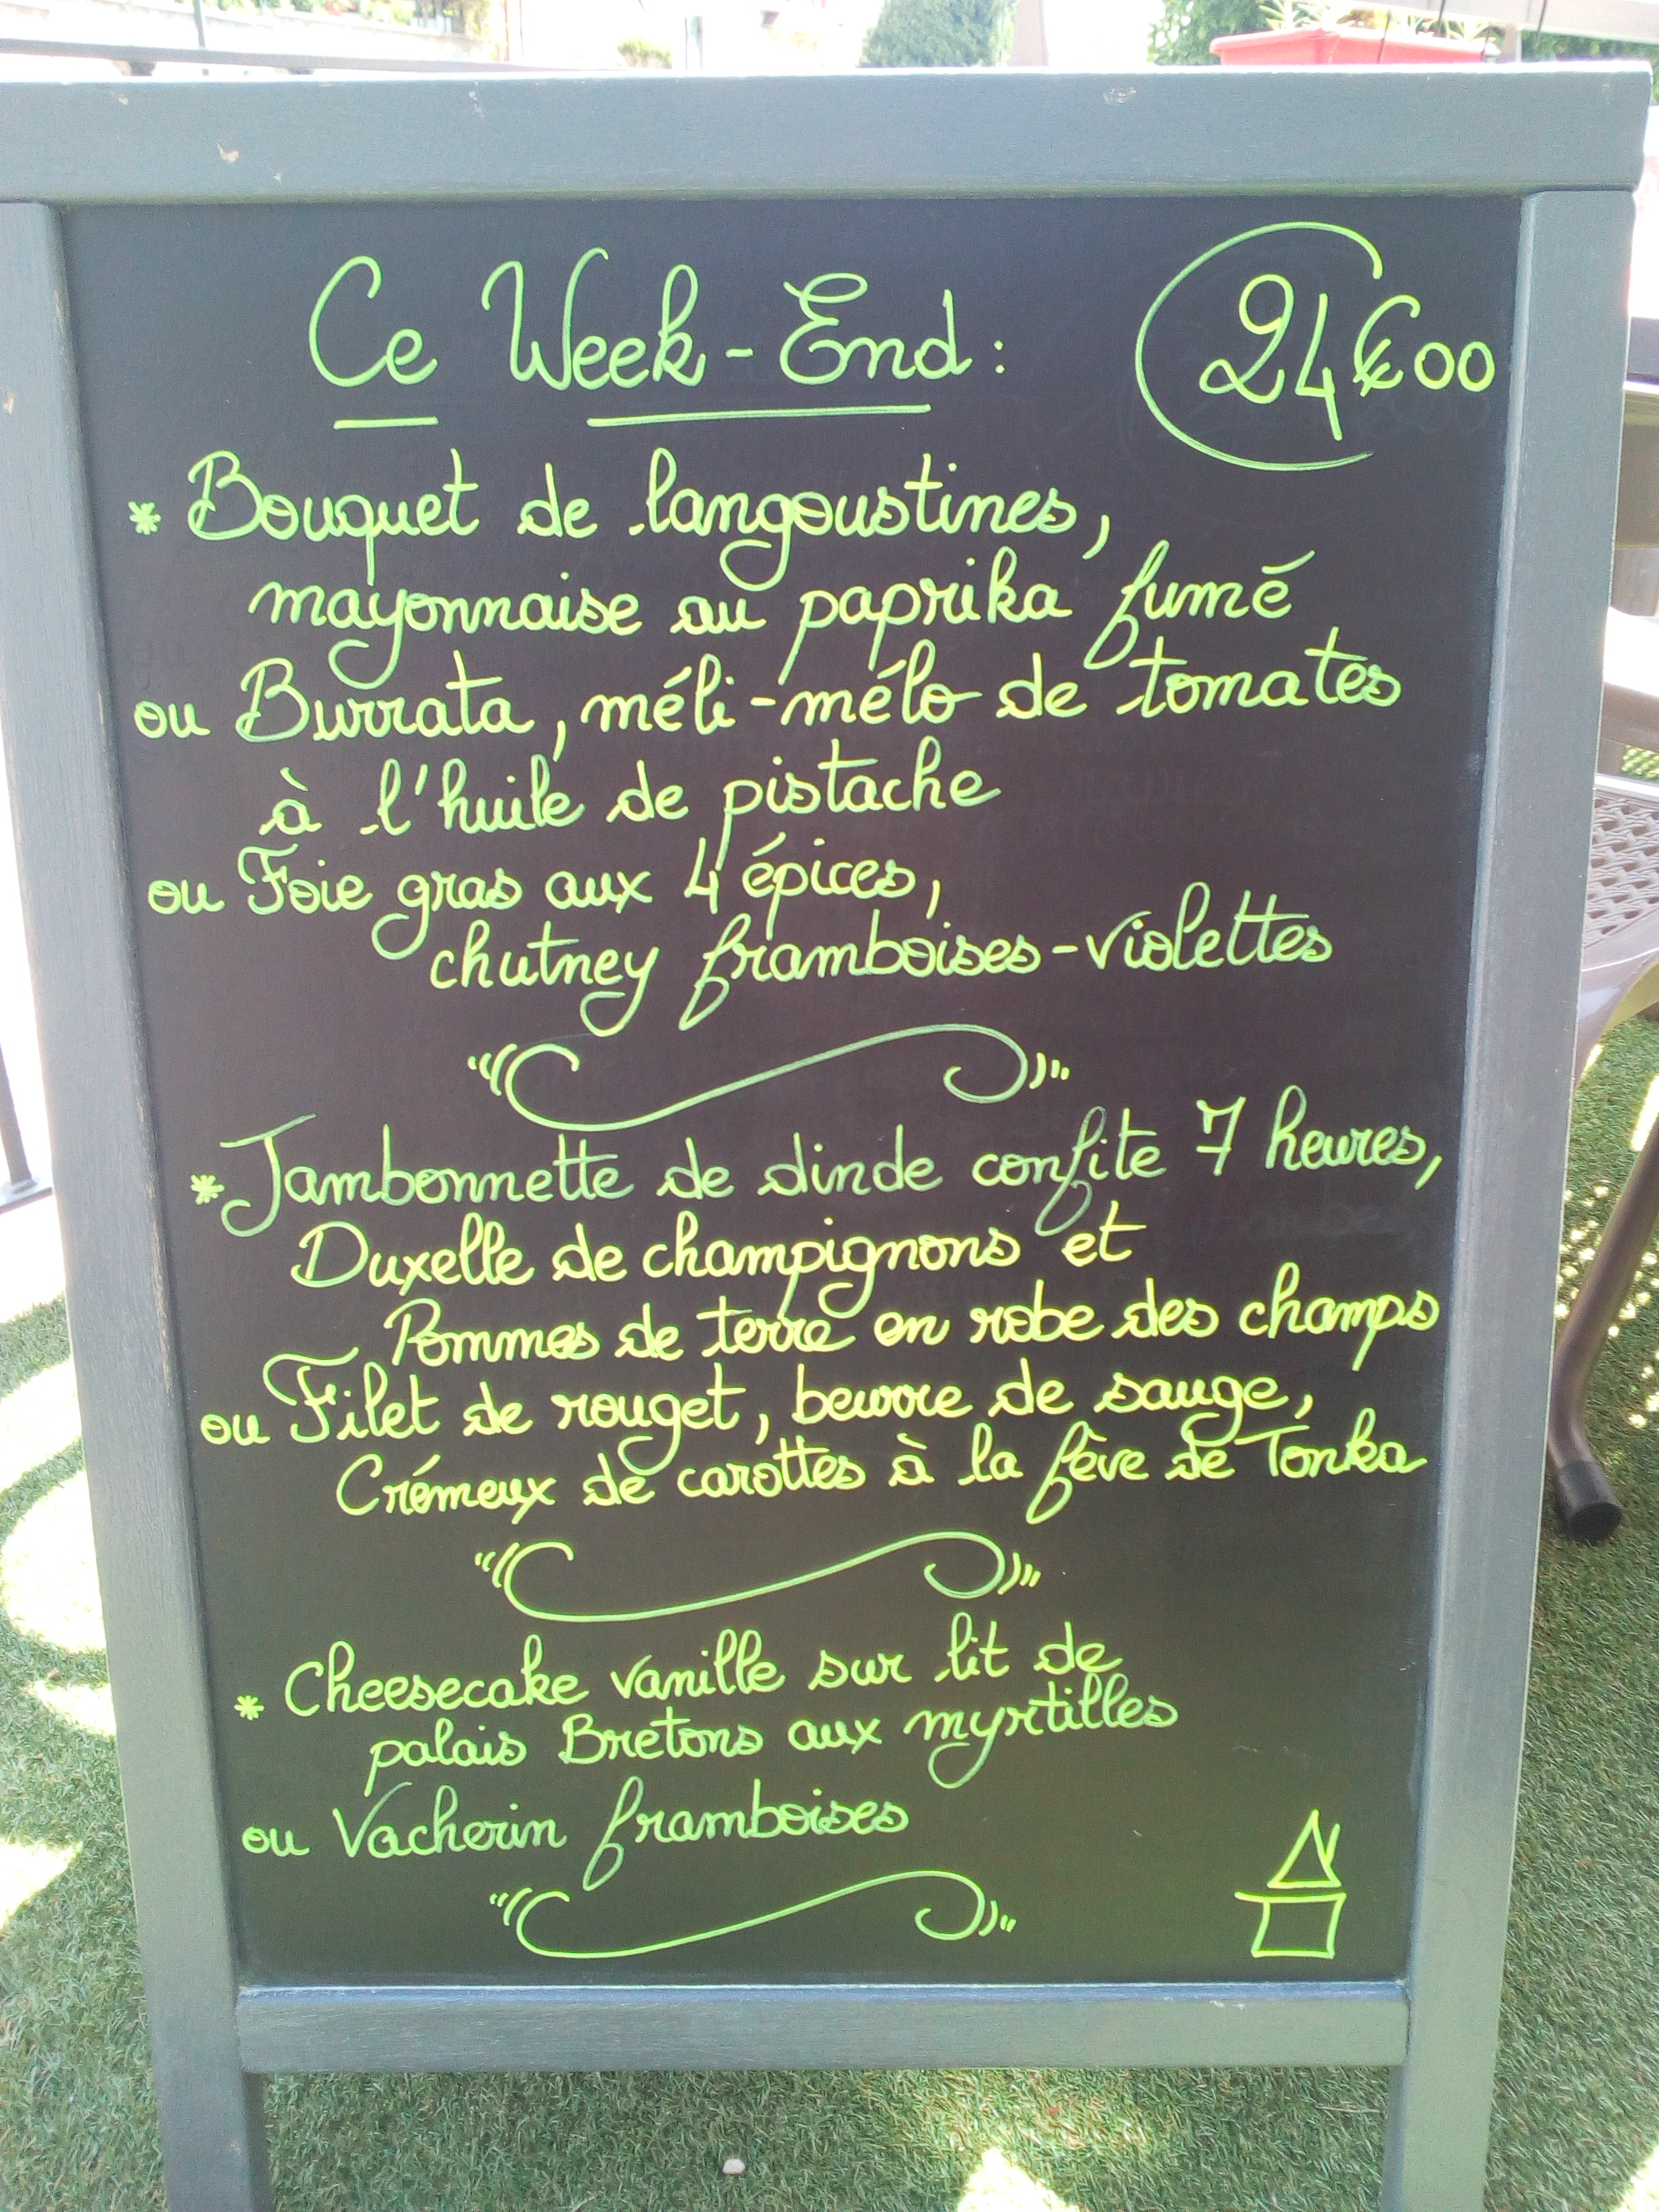 Ce Week-End : 24€00
* Bouquet de langoustines,
mayonnaise au paprika fumé
ou Burrata, méli-mélo de tomates
à l'huile de pistache
ou Foie gras aux 4 épices,
chutney framboises-violettes
* Jambonnette de dinde confite 7 heures,
Duxelle de champignons et
Pommes de terre en robe des champs
ou Filet de rouget, beurre de sauge,
Crémeux de carottes à la fève de Tonka
* Cheesecake vanille sur lit de
palais Bretons aux myrtilles
ou Vacherin framboises